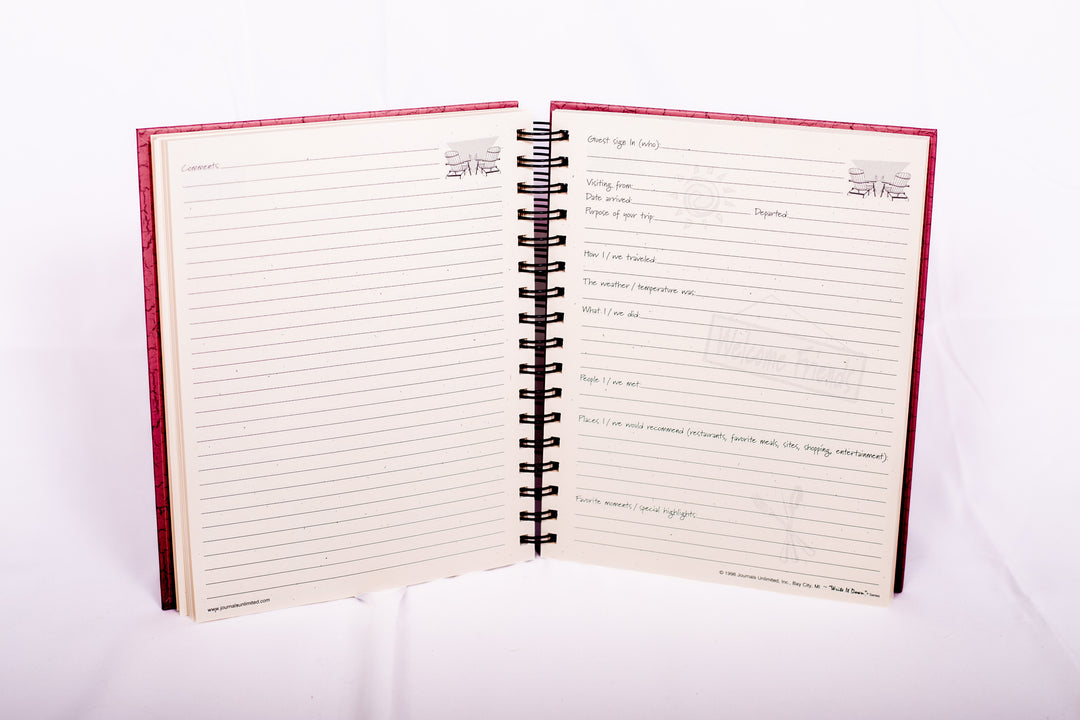 Comments:
www.journalsunlimited.com
Guest sign in (who):
Visiting from:
Date arrived: Departed:
Purpose of your trip:
How I / we traveled:
The weather / temperature was:
What I / we did:
Welcome Friends
People I / we met:
Places I / we would recommend (restaurants, favorite meals, sites, shopping, entertainment):
Favorite moments / special highlights:
© 1996 Journals Unlimited, Inc., Bay City, MI ~ "Write It Down"